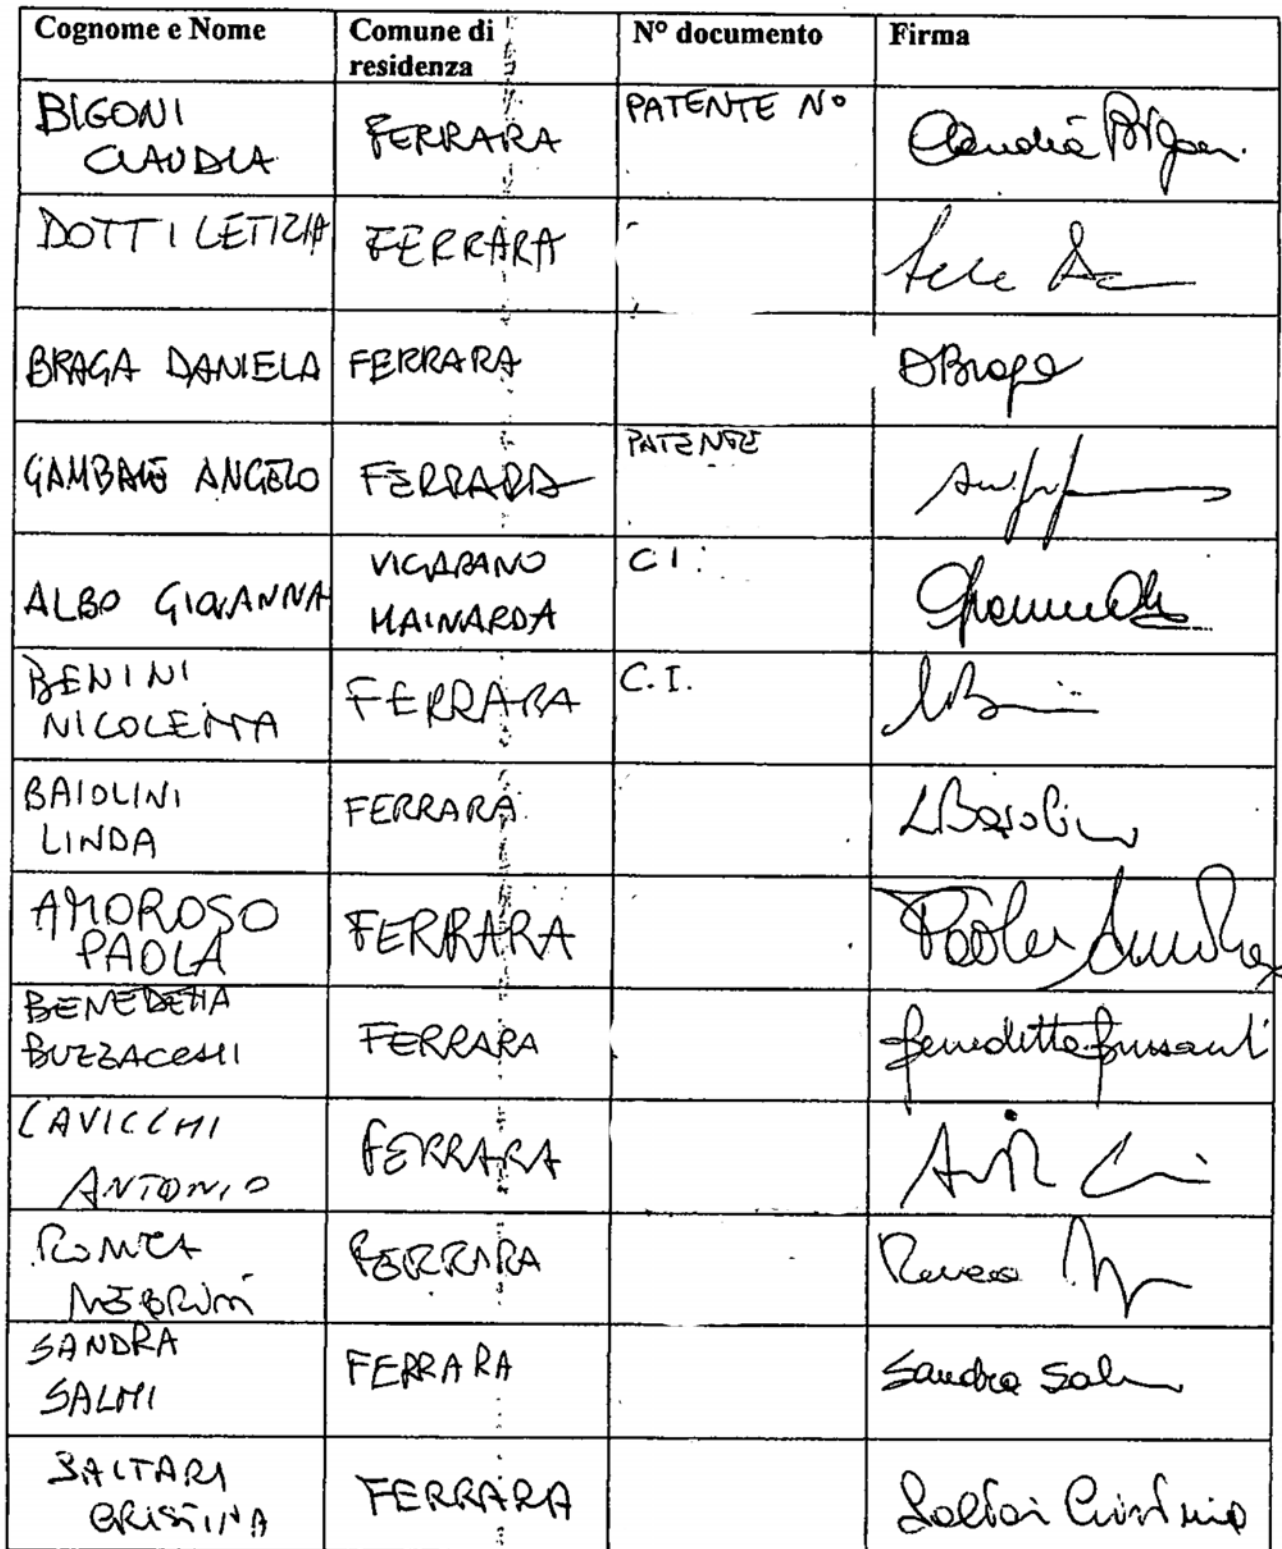 Cognome e Nome Comune di residenza N° documento Firma
BIGONI CLAUDIA FERRARA PATENTE N° Claudia Bigoni
DOTTI LETIZIA FERRARA
BRAGA DANIELA FERRARA DBraga
GAMBALE ANGELO FERRARA PATENTE
ALBO GIOVANNA VIGARANO MAINARDA C.I.
BENINI NICOLETTA FERRARA C.I.
BAIOLINI LINDA FERRARA LBaiolini
AMOROSO PAOLA FERRARA Paola Amoroso
BENEDETTA FERRARA Benedetta
CAVICCHI ANTONIO FERRARA
FERRARA
SANDRA SALMI FERRARA Sandra Salmi
SALTARI CRISTINA FERRARA Saltari Cristina